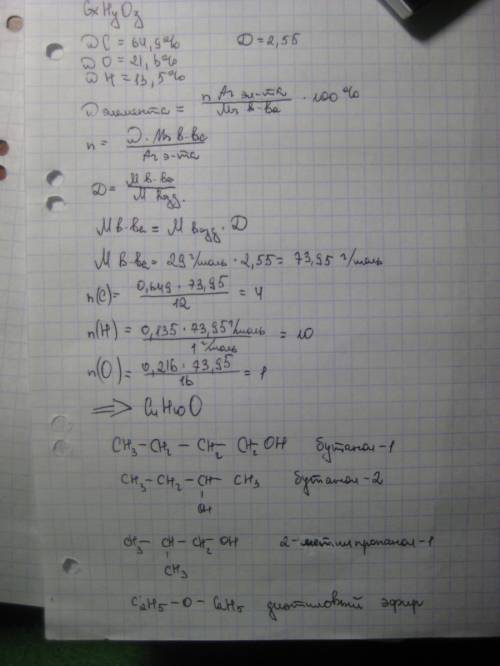 CxHyOz
ωC = 64,9% D = 2,55
ωO = 21,6%
ωH = 13,5%
ω элемента = n Ar эл-та / Mr в-ва · 100%
n = ω · Mr в-ва / Ar э-та
D = M в-ва / M возд.
M в-ва = M возд · D
M в-ва = 29 г/моль · 2,55 = 73,95 г/моль
n(C) = 0,649 · 73,95 / 12 = 4
n(H) = 0,135 · 73,95 г/моль / 1 г/моль = 10
n(O) = 0,216 · 73,95 / 16 = 1
⇒ C4H10O
CH3 – CH2 – CH2 – CH2OH бутанол-1
CH3 – CH2 – CH – CH3 бутанол-2
OH
CH3 – CH – CH2 – OH 2-метилпропанол-1
CH3
C2H5 – O – C2H5 диэтиловый эфир